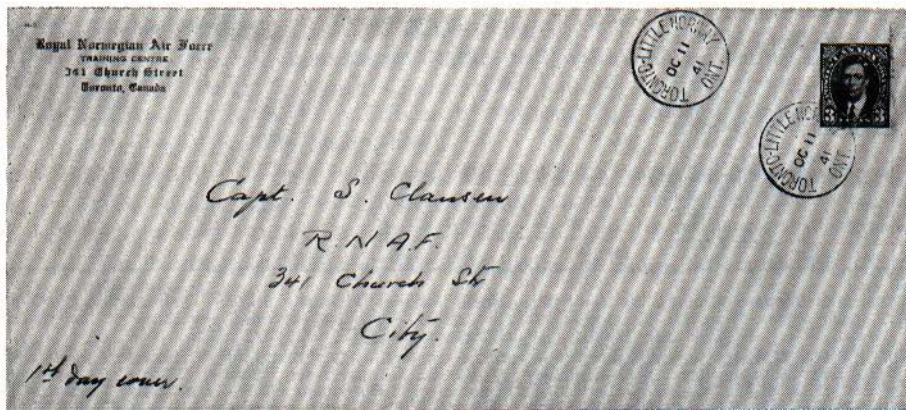 Royal Norwegian Air Force
TRAINING CENTRE
341 Church Street
Toronto, Canada
TORONTO-LITTLE NORWAY
OC 11
41
ONT.
3 3
TORONTO-LITTLE NORWAY
OC 11
41
ONT.
Capt. S. Clausen
R.N.A.F.
341 Church Str
City.
1st day cover.